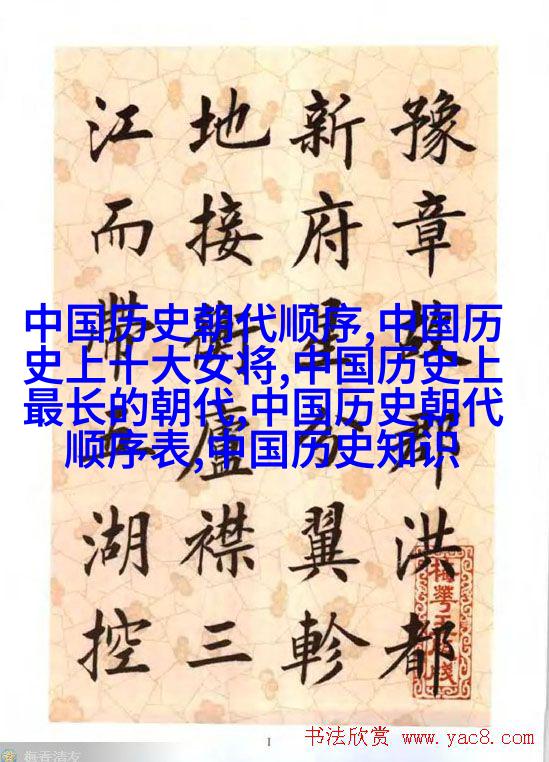 豫章故郡洪都
新府星分翼軫
地接衡廬襟三
江而帶五湖控
中国历史朝代顺序,中国历
史上十大女将,中国历史上
最长的朝代,中国历史朝代
顺序表,中国历史知识
1
书法欣赏 www.yac8.com